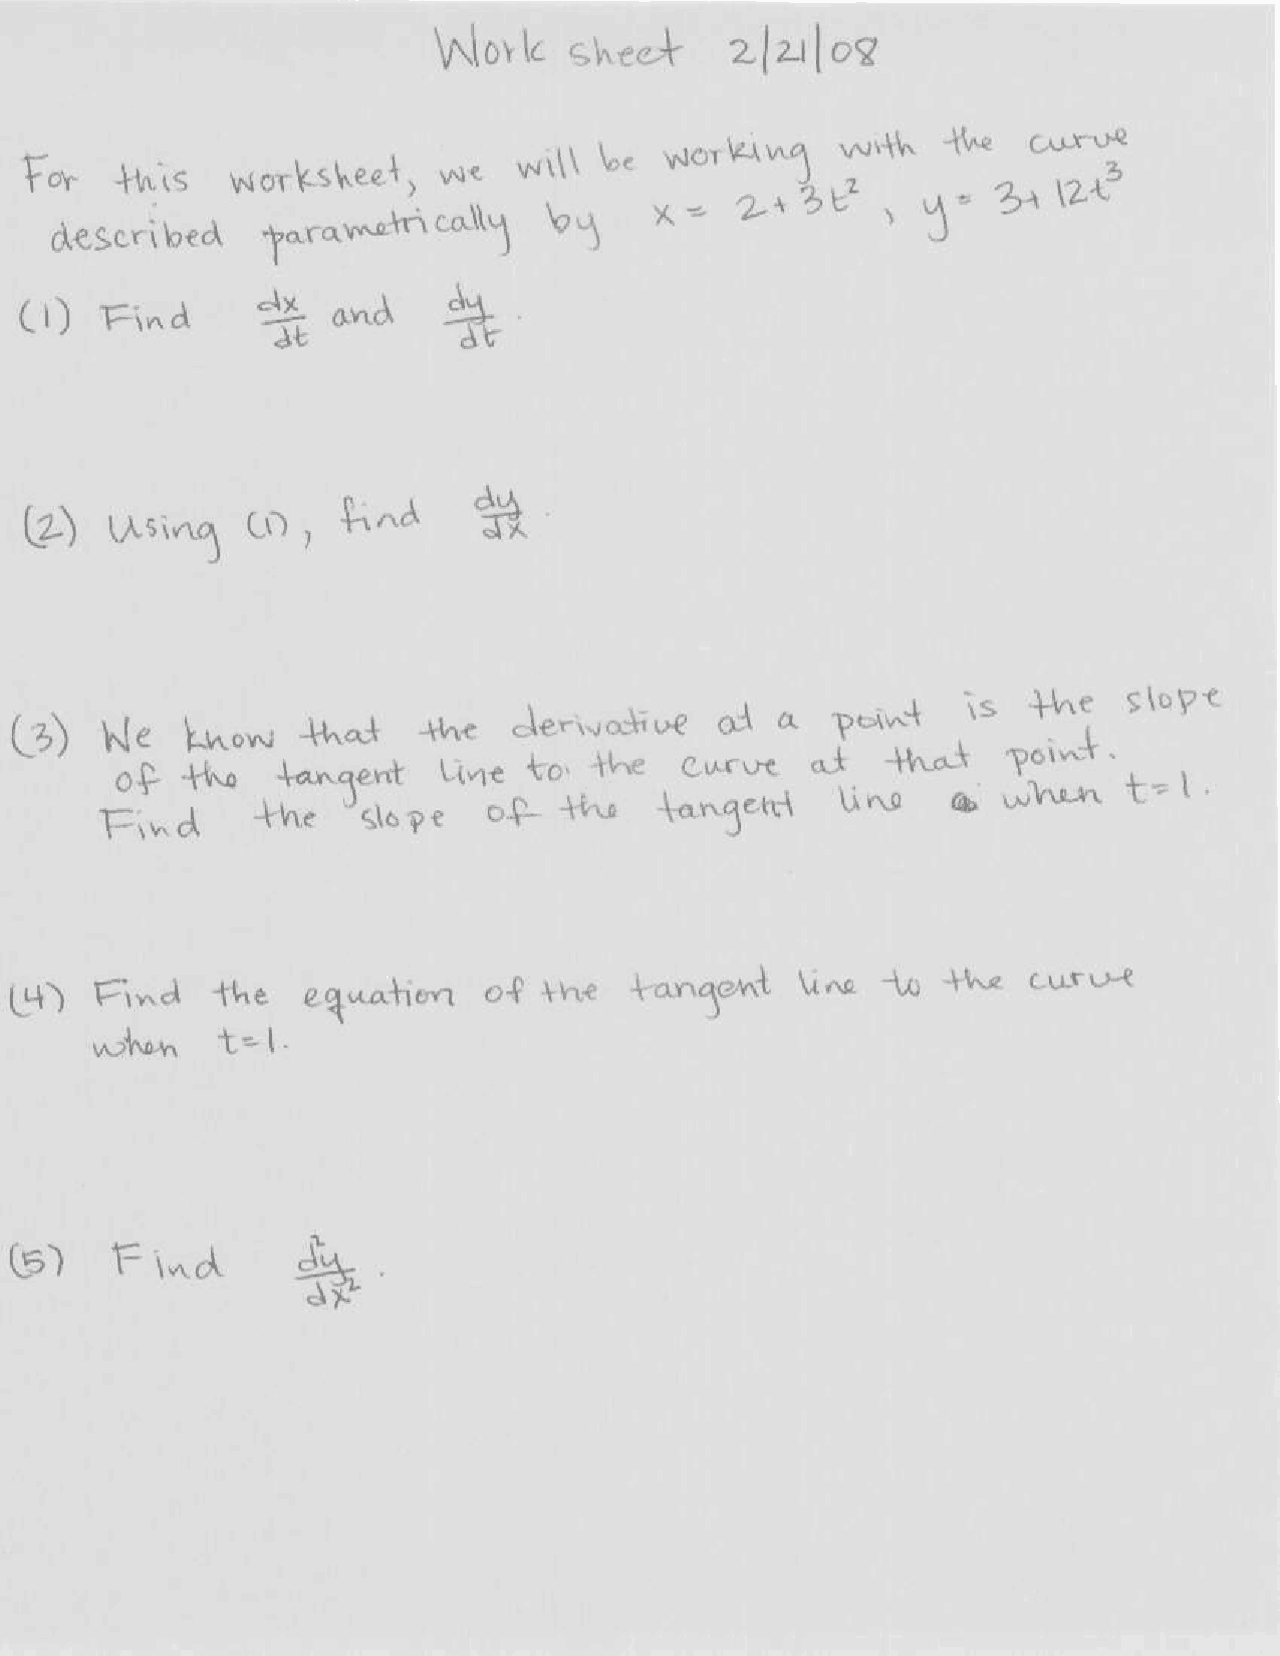 Work sheet 2/21/08
For this worksheet, we will be working with the curve
described parametrically by x = 2+3t², y = 3+12t³
(1) Find dx/dt and dy/dt.
(2) Using (1), find dy/dx.
(3) We know that the derivative at a point is the slope
of the tangent line to the curve at that point.
Find the slope of the tangent line when t=1.
(4) Find the equation of the tangent line to the curve
when t=1.
(5) Find d²y/dx².